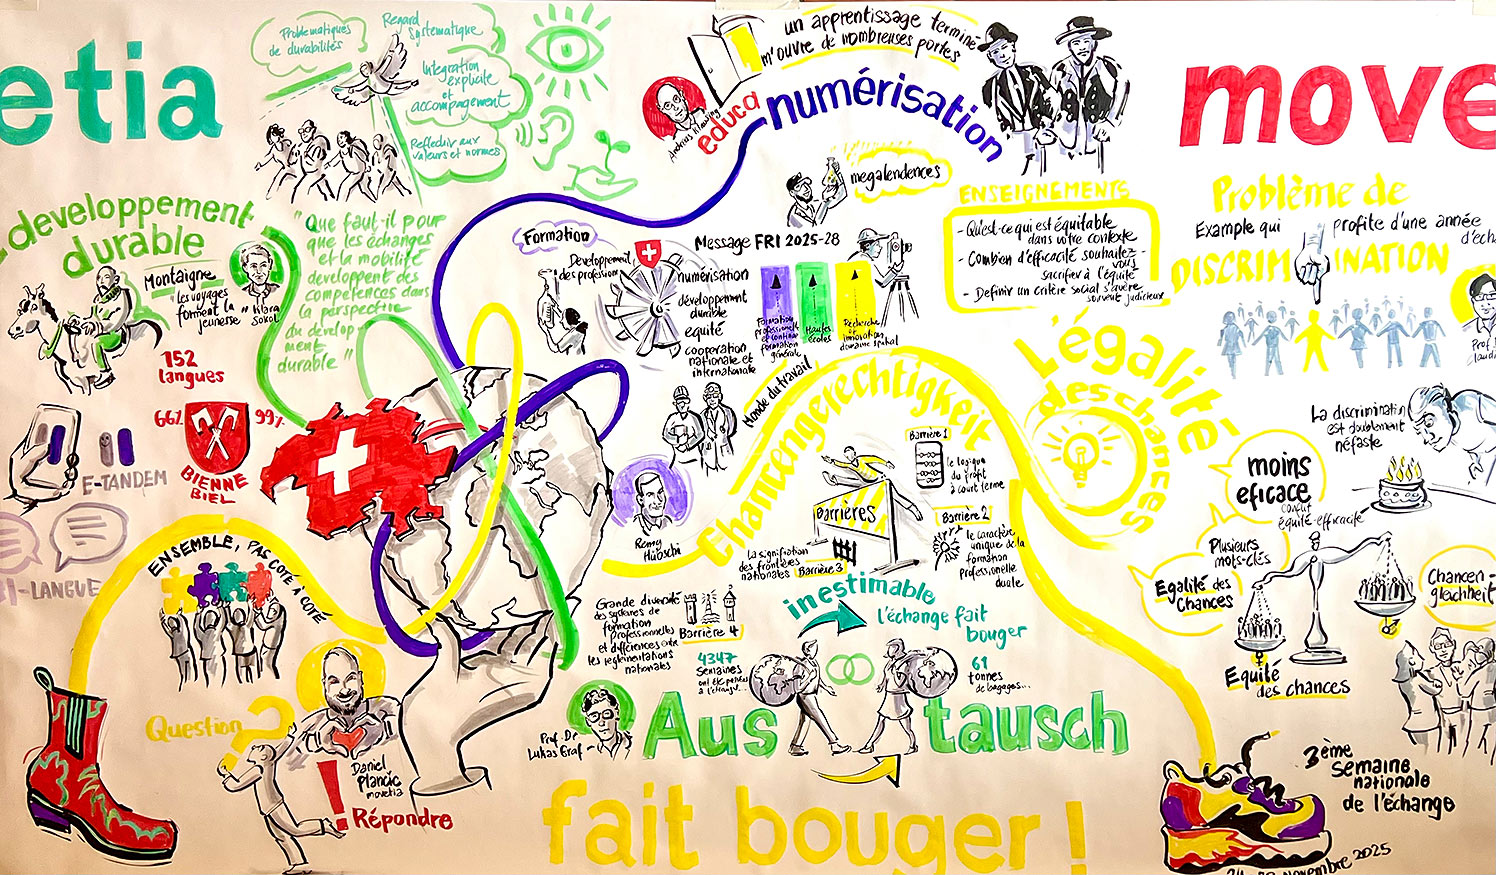 etia
Problématiques
de durabilités
Regard
Systématique
Intégration
explicite
et
accompagnement
Réfléchir aux
valeurs et normes
developpement
durable
"Que faut-il pour
que les échanges
et la mobilité
developpent des
compétences dans
la perspective
du dévelop
ment
durable"
Montaigne
"Les voyages
forment la
jeunesse"
Klara
Sokol
152
langues
66%
99%
BIENNE
BIEL
E-TANDEM
BI-LANGUE
ENSEMBLE, PAS COTÉ À COTÉ
Question
?
!
Répondre
Daniel
Plancic
movetia
un apprentissage terminé
m'ouvre de nombreuses portes
educa
numérisation
megalendences
Formation
Développement
des professions
Message FRI 2025-28
numérisation
développement
durable
equité
cooperation
nationale et
internationale
Formation
professionnelle
et continue
formation
générale
Hautes
écoles
Recherche
et
innovation
domaine spatial
Monde du travail
Remy
Hübschi
Chancengerechtigkeit
Barrières
Barrière 1
le logique
du profit
à court terme
Barrière 2
le caractère
unique de la
formation
professionelle
duale
La signifiation
des frontières
nationales
Barrière 3
Grande diversité
des systèmes de
formation
professionnelles
et différences entre
les reglementations
nationales
Barrière 4
inestimable
l'échange fait
bouger
4347
Semaines
ont été passées
à l'échange...
61
tonnes
de bagages...
Prof. Dr.
Lukas Graf
Austausch
fait bouger!
move
ENSEIGNEMENTS
- Qu'est-ce qui est équitable
dans votre contexte
- Combien d'efficacité souhaitez
vous
sacrifier à l'équité
- Definir un critère social s'avère
souvent judicieux
Problème de
DISCRIMINATION
Example qui profite d'une année
d'écha
Prof.
L'égalité
des chances
La discrimination
est doublement
néfaste
moins
eficace
conflit
équité-efficacité
Plusieurs
mots-clés
Egalité des
Chances
Chancen
gleichheit
Equité
des chances
3ème
semaine
nationale
de l'échange
novembre 2025